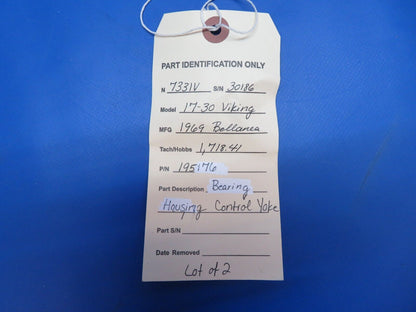 PART IDENTIFICATION ONLY
N 7331V S/N 30186
Model 17-30 Viking
MFG 1969 Bellanca
Tach/Hobbs 1,718.41
P/N 195176
Part Description Bearing
Housing Control Yoke
Part S/N
Date Removed
Lot of 2